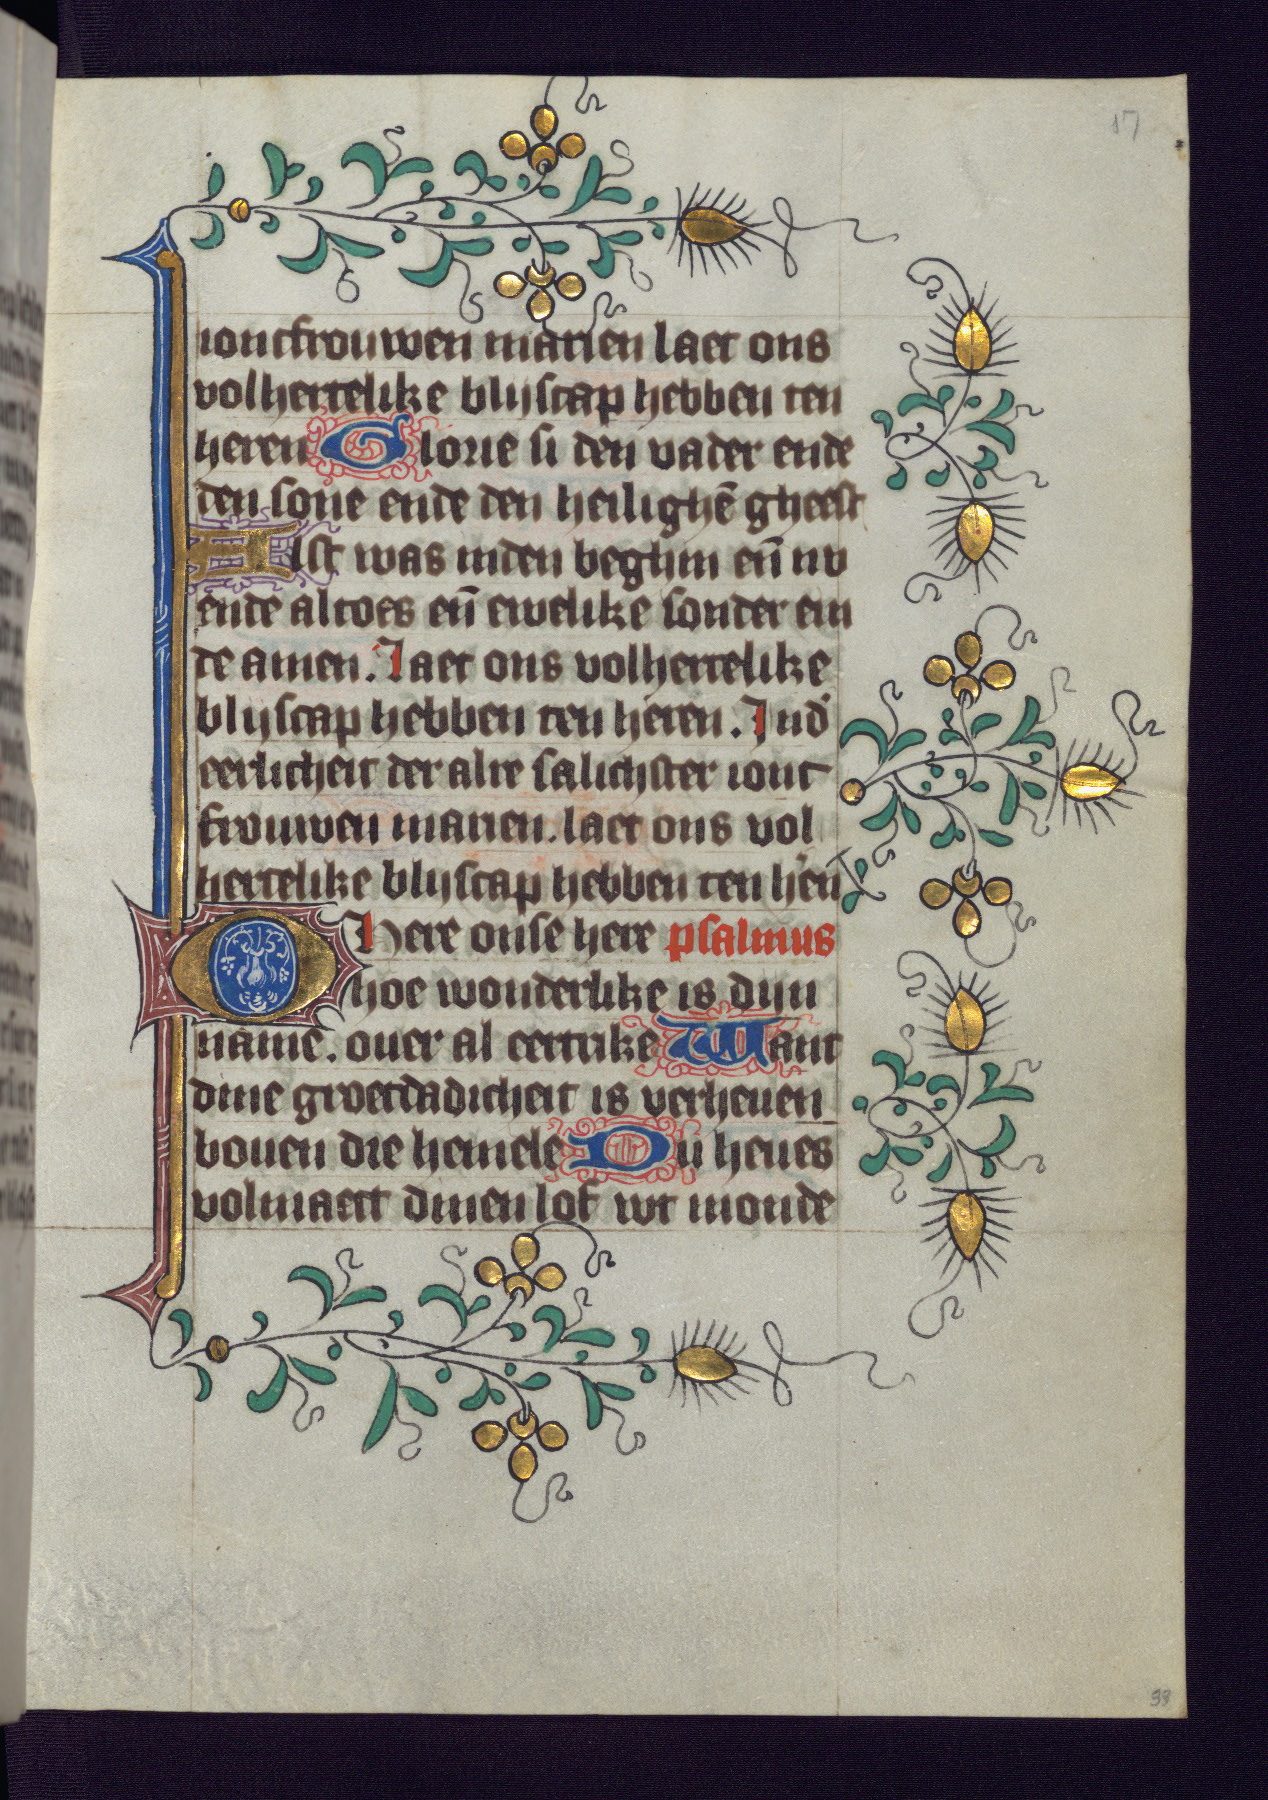 17
ioncfrouwen marien laet ons
volhertelike blijscap hebben ten
heren Glorie si den vader ende
den sone ende den heilighē gheest
Alst was inden beghin eñ nv
ende altoes eñ ewelike sonder ein
de amen. Laet ons volhertelike
blijscap hebben ten heren. Ind'
eerlicheit der alre salichster ionc
frouwen marien. laet ons vol
hertelike blijscap hebben ten h'en
O Here onse here psalmus
hoe wonderlike is dijn
name. ouer al eertrike Want
dine groetdadicheit is verheuen
bouen die hemele Du heues
volmaect dinen lof wt monde